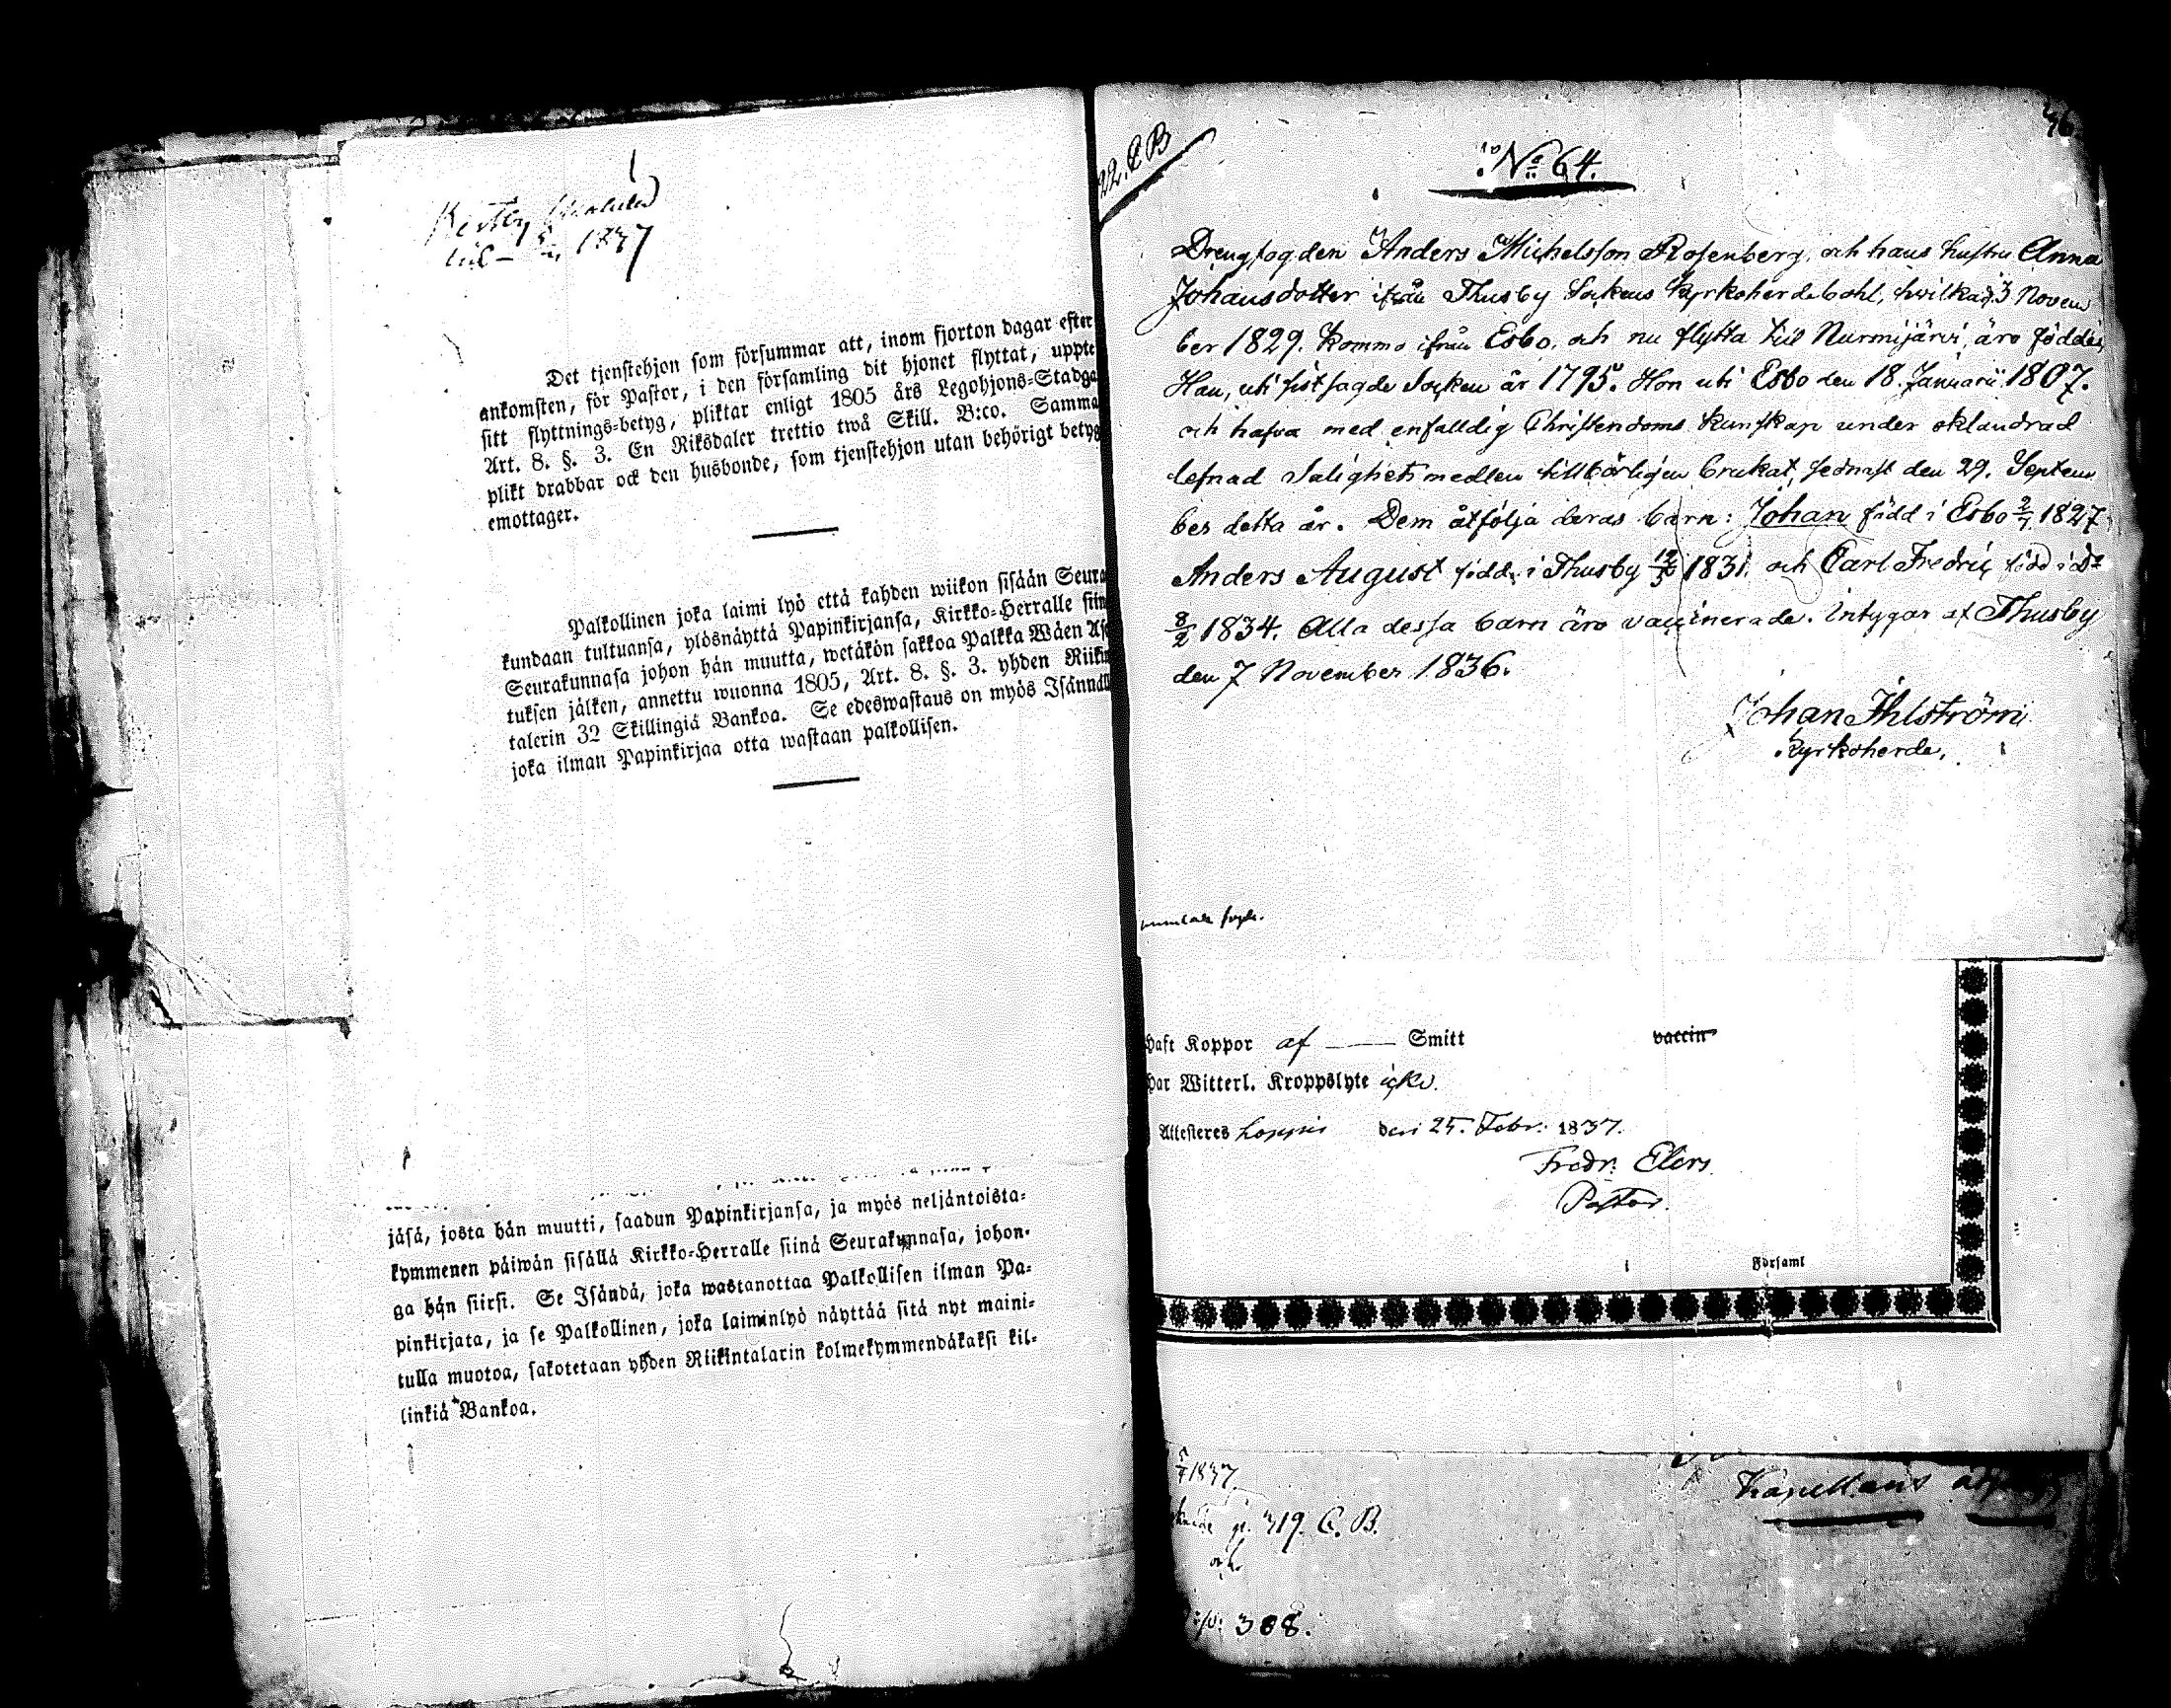 1837
Det tjenstehjon som försummar att, inom fjorton dagar efter
ankomsten, för Pastor, i den församling dit hjonet flyttat, uppte
sitt flyttnings-betyg, pliktar enligt 1805 års Legohjons-Stadga
Art. 8. §. 3. En Riksdaler trettio twå Skill. B:co. Samma
plikt drabbar ock den husbonde, som tjenstehjon utan behörigt betyg
emottager.
Palkollinen joka laimi lyö että kahden wiikon sisään Seura
kundaan tultuansa, ylösnäyttä Papinkirjansa, Kirkko-Herralle siin
Seurakunnasa johon hän muutta, wetäkön sakkoa Palkka Wäen Ase
tuksen jälken, annettu wuonna 1805, Art. 8. §. 3. yhden Riikin
talerin 32 Skillingiä Bankoa. Se edeswastaus on myös Isännäll
joka ilman Papinkirjaa otta wastaan palkollisen.
jäsä, josta hän muutti, saadun Papinkirjansa, ja myös neljäntoista-
kymmenen päiwän sisällä Kirkko-Herralle siinä Seurakunnasa, johon-
ga hän siirsi. Se Isändä, joka wastanottaa Palkollisen ilman Pa-
pinkirjata, ja se Palkollinen, joka laiminlyö näyttää sitä nyt maini-
tulla muotoa, sakotetaan yhden Riikintalarin kolmekymmendäkaksi kil-
linkiä Bankoa.
No 64.
Drengfogden Anders Michelsson Rosenberg, och hans hustru Anna
Johansdotter ifrån Thusby Sockens Kyrkoherdebohl, hvilka d. 3 Novem
ber 1829. kommo ifrån Esbo, och nu flytta till Nurmijärvi, äro födde;
Han, uti sistsagde Socken år 1795. Hon uti Esbo den 18. Januarii 1807.
och hafva med enfalldig Christendoms kunskap under oklandrad
lefnad Salighetsmedlen tillbörligen brukat, sednast den 29. Septem
ber detta år. Dem åtfölja deras barn: Johan född i Esbo 2/7 1827
Anders August född i Thusby 1831. och Carl Fredric född i Do
8/2 1834. Alla dessa barn äro vaccinerade. Intygar af Thusby
den 7 November 1836.
Johan Ihlström
Kyrkoherde.
haft Koppor af —— Smitt vaccin
har Witterl. Kroppslyte icke.
Attesteres Loppis den 25. Febr. 1837.
Fredr. Elers
Pastor.
Församl
1837
319. C. B.
och
308.
Kapellans